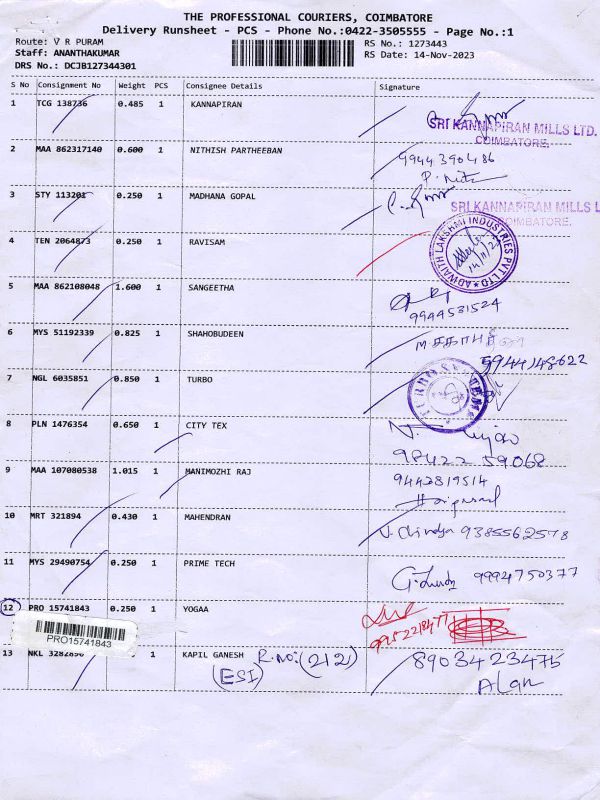 THE PROFESSIONAL COURIERS, COIMBATORE
Delivery Runsheet - PCS - Phone No.:0422-3505555 - Page No.:1
Route: V R PURAM RS No.: 1273443
Staff: ANANTHAKUMAR RS Date: 14-Nov-2023
DRS No.: DCJB127344301
S No Consignment No Weight PCS Consignee Details Signature
1 TCG 138736 0.485 1 KANNAPIRAN
SRI KANNAPIRAN MILLS LTD.
COIMBATORE.
2 MAA 862317140 0.600 1 NITHISH PARTHEEBAN 9944390486
3 STY 113201 0.250 1 MADHANA GOPAL
SRI KANNAPIRAN MILLS L
COIMBATORE.
4 TEN 2064873 0.250 1 RAVISAM
ADWAITH LAKSHMI INDUSTRIES PVT LTD
14/11/23
5 MAA 862108048 1.600 1 SANGEETHA
9944531524
6 MYS 51192339 0.825 1 SHAHOBUDEEN
9944148622
7 NGL 6035851 0.850 1 TURBO
8 PLN 1476354 0.650 1 CITY TEX
98422 59068
9 MAA 107080538 1.015 1 MANIMOZHI RAJ 9442819514
10 MRT 321894 0.430 1 MAHENDRAN 9385562578
11 MYS 29490754 0.250 1 PRIME TECH 9994750377
12 PRO 15741843 0.250 1 YOGAA
9952218477
PRO15741843
13 NKL 3282890 1 KAPIL GANESH R.No:(212) 8903423475
(ESI) Alan